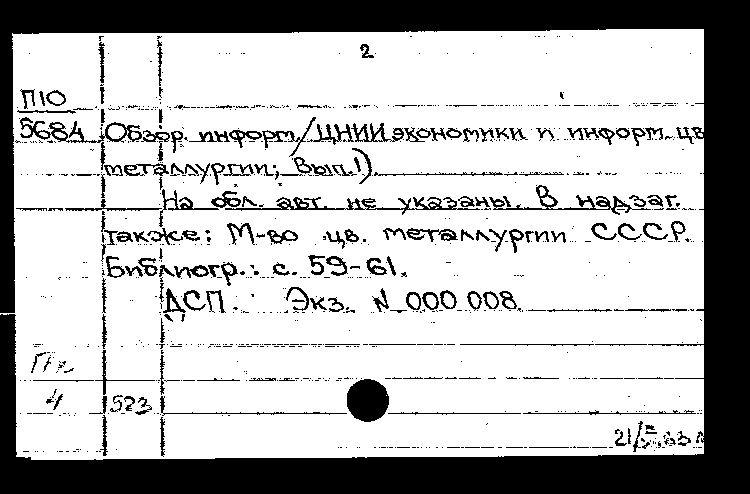 2
П10
5684 Обзор. информ./ЦНИИ экономики и информ. цв
металлургии; Вып.1)
На обл. авт. не указаны. В надзаг.
также: М-во цв. металлургии СССР.
Библиогр.: с. 59-61.
ДСП. Экз. N 000 008
4 523